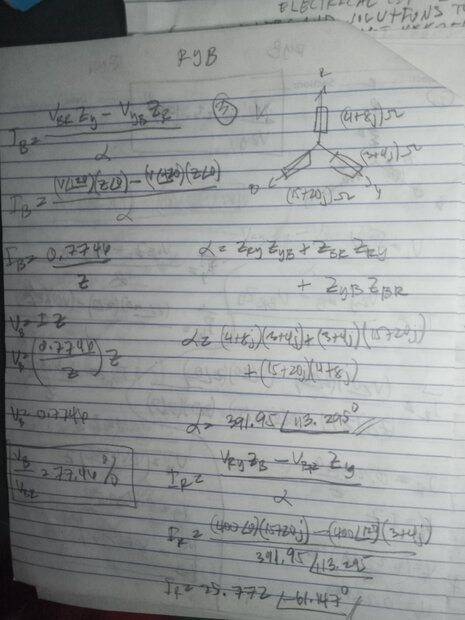 ELECTRICAL
RYB
I_B = (V_BR Z_y − V_YB Z_R) / α
③
R
(4+8j)Ω
(3+4j)Ω
(15+20j)Ω
Y
I_B = / α
I_B = 0.7746 / Z
α = Z_RY Z_YB + Z_BR Z_RY
+ Z_YB Z_BR
V_B = IZ
V_B = (0.7746 / Z) Z
α = (4+8j)(3+4j) + (3+4j)(15+20j)
+ (15+20j)(4+8j)
V_B = 0.7746
α = 391.95 ∠113.295°
= 77.46%
I_R = (V_RY Z_B − V_BR Z_y) / α
I_R = (400∠0)(15+20j) − (400∠120)(3+4j) / 391.95∠113.295
I_R = 25.772 ∠−61.147°